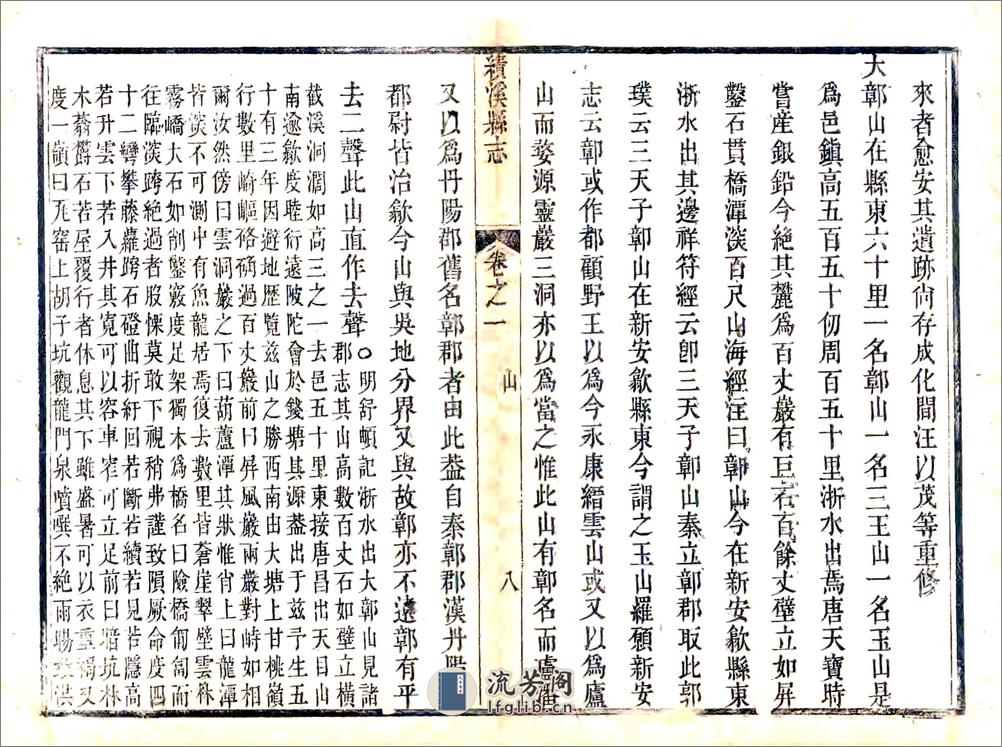 來者愈安其遺跡尙存成化間汪以茂等重修
大鄣山在縣東六十里一名鄣山一名三王山一名玉山是
爲邑鎭高五百五十仞周百五十里浙水出焉唐天寶時
嘗産銀鉛今絶其麓爲百丈巖有巨石百餘丈壁立如屏
鑿石貫橋潭深百尺山海經注曰鄣山今在新安歙縣東
浙水出其邊祥符經云卽三天子鄣山秦立鄣郡取此郭
璞云三天子鄣山在新安歙縣東今謂之玉山羅願新安
志云鄣或作都顧野王以爲今永康縉雲山或又以爲廬
山而婺源靈巖三洞亦以爲當之惟此山有鄣名而
績溪縣志
卷之一
山
八
又以爲丹陽郡舊名鄣郡者由此蓋自秦鄣郡漢丹陽
都尉皆治歙今山與吳地分界又與故鄣亦不遠鄣有平
去二聲此山直作去聲○明舒頓記浙水出大鄣山見諸
郡志其山高數百丈石如壁立橫
截溪洞濶如高三之一去邑五十里東接唐昌出天目山
南逾歙度睦衍遠陂陀會於錢塘其源蓋出于兹予生五
十有三年因避地歷覽兹山之勝西南由大塘上甘桃嶺
行數里崎嶇硌确過百丈巖前曰屏風巖兩巖對峙如相
爾汝然傍曰雲洞巖之下曰葫蘆潭其狀惟肖上曰龍潭
皆深不可測中有魚龍居焉復去數里皆蒼崖翠壁雲林
霧嶠大石如削鑿竅度足架獨木爲橋名曰險橋匍匐而
往臨深跨絶過者股慄莫敢下視稍弗謹致隕厥命度四
十二彎攀藤蘿跨石磴曲折紆回若斷若續若見若隱高
若升雲下若入井其寬可以容車窄可立足前曰暗坑林
木蓊欝石若屋覆行者休息其下雖盛暑可以衣重褐又
度一嶺曰瓦窑上胡子坑觀龍門泉噴㗲不絶雨暘
流芳閣
lfglib.cn.com